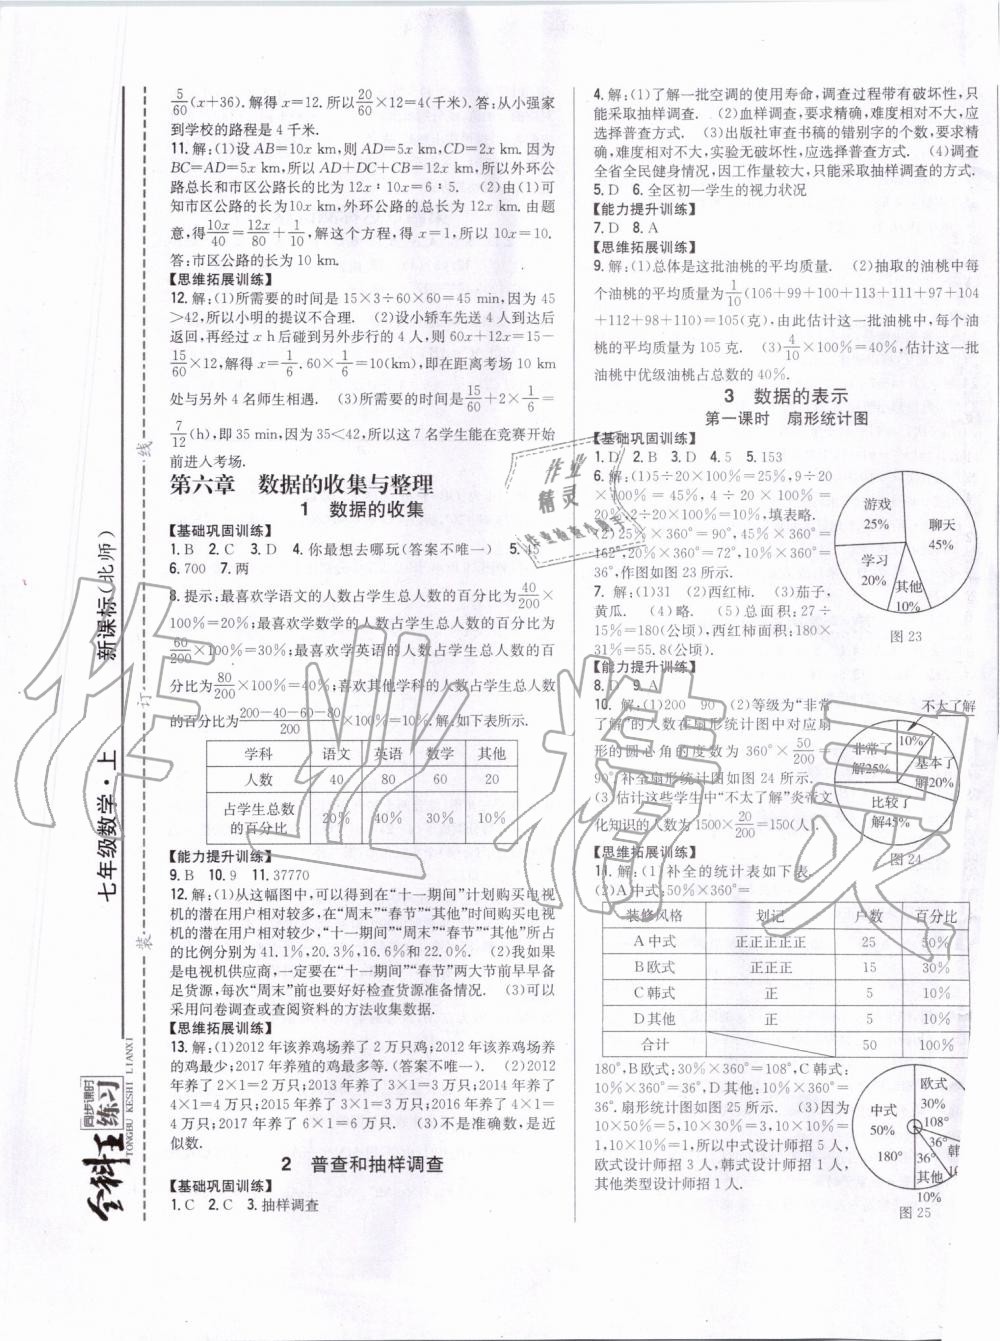 5/60(x+36).解得x=12.所以20/60×12=4(千米).答:从小强家
到学校的路程是4千米.
11.解:(1)设AB=10x km,则AD=5x km,CD=2x km.因为
BC=AD=5x km,所以AD+DC+CB=12x km,所以外环公
路总长和市区公路长的比为12x∶10x=6∶5. (2)由(1)可
知市区公路的长为10x km,外环公路的总长为12x km.由题
意,得10x/40=12x/80+1/10,解这个方程,得x=1,所以10x=10.
答:市区公路的长为10 km.
【思维拓展训练】
12.解:(1)所需要的时间是15×3÷60×60=45 min,因为45
>42,所以小明的提议不合理. (2)设小轿车先送4人到达后
返回,再经过x h后碰到另外步行的4人,则60x+12x=15-
15/60×12,解得x=1/6.60×1/6=10(km),即在距离考场10 km
处与另外4名师生相遇. (3)所需要的时间是15/60+2×1/6=
7/12(h),即35 min,因为35<42,所以这7名学生能在竞赛开始
前进入考场.
第六章 数据的收集与整理
1 数据的收集
【基础巩固训练】
1.B 2.C 3.D 4.你最想去哪玩(答案不唯一) 5.45
6.700 7.两
8.提示:最喜欢学语文的人数占学生总人数的百分比为40/200×
100%=20%;最喜欢学数学的人数占学生总人数的百分比为
60/200×100%=30%;最喜欢学英语的人数占学生总人数的百
分比为80/200×100%=40%;喜欢其他学科的人数占学生总人数
的百分比为200-40-60-80/200×100%=10%.解:如下表所示.
学科 语文 英语 数学 其他
人数 40 80 60 20
占学生总数
的百分比 20% 40% 30% 10%
【能力提升训练】
9.B 10.9 11.37770
12.解:(1)从这幅图中,可以得到在“十一期间”计划购买电视
机的潜在用户相对较多,在“周末”“春节”“其他”时间购买电视
机的潜在用户相对较少,“十一期间”“周末”“春节”“其他”所占
的比例分别为41.1%,20.3%,16.6%和22.0%. (2)我如果
是电视机供应商,一定要在“十一期间”“春节”两大节前早早备
足货源,每次“周末”前也要好好检查货源准备情况. (3)可以
采用问卷调查或查阅资料的方法收集数据.
【思维拓展训练】
13.解:(1)2012年该养鸡场养了2万只鸡;2012年该养鸡场养
的鸡最少;2017年养殖的鸡最多等.(答案不唯一). (2)2012
年养了2×1=2万只;2013年养了3×1=3万只;2014年养了
4×1=4万只;2015年养了3×1=3万只;2016年养了4×1=
4万只;2017年养了6×1=6万只. (3)不是准确数,是近
似数.
2 普查和抽样调查
【基础巩固训练】
1.C 2.C 3.抽样调查
4.解:(1)了解一批空调的使用寿命,调查过程带有破坏性,只
能采取抽样调查. (2)血样调查,要求精确,难度相对不大,应
选择普查方式. (3)出版社审查书稿的错别字的个数,要求精
确,难度相对不大,实验无破坏性,应选择普查方式. (4)调查
全省全民健身情况,因工作量较大,只能采取抽样调查的方式.
5.D 6.全区初一学生的视力状况
【能力提升训练】
7.D 8.A
【思维拓展训练】
9.解:(1)总体是这批油桃的平均质量. (2)抽取的油桃中每
个油桃的平均质量为1/10(106+99+100+113+111+97+104
+112+98+110)=105(克),由此估计这一批油桃中,每个油
桃的平均质量为105克. (3)4/10×100%=40%,估计这一批
油桃中优级油桃占总数的40%.
3 数据的表示
第一课时 扇形统计图
【基础巩固训练】
1.D 2.B 3.D 4.5 5.153
6.解:(1)5÷20×100%=25%,9÷20
×100%=45%,4÷20×100%=
20%,2÷20×100%=10%,填表略.
(2)25%×360°=90°,45%×360°=
162°,20%×360°=72°,10%×360°=
36°,作图如图23所示.
7.解:(1)31 (2)西红柿. (3)茄子,
黄瓜. (4)略. (5)总面积:27÷
15%=180(公顷),西红柿面积:180×
31%=55.8(公顷).
游戏
25%
聊天
45%
学习
20%
其他
10%
图23
【能力提升训练】
8.D 9.A
10.解:(1)200 90 (2)等级为“非常
了解”的人数在扇形统计图中对应扇
形的圆心角的度数为360°×50/200=
90°,补全扇形统计图如图24所示.
(3)估计这些学生中“不太了解”炎帝文
化知识的人数为1500×20/200=150(人).
不太了解
10%
非常了
解25%
基本了
解20%
比较了
解45%
图24
【思维拓展训练】
11.解:(1)补全的统计表如下表.
(2)A中式:50%×360°=
装修风格 划记 户数 百分比
A中式 正正正正正 25 50%
B欧式 正正正 15 30%
C韩式 正 5 10%
D其他 正 5 10%
合计 50 100%
180°,B欧式:30%×360°=108°,C韩式:
10%×360°=36°,D其他:10%×360°=
36°.扇形统计图如图25所示. (3)因为
10×50%=5,10×30%=3,10×10%=
1,10×10%=1,所以中式设计师招5人,
欧式设计师招3人,韩式设计师招1人,
其他类型设计师招1人.
中式
50%
180°
欧式
30%
108°
36°
36°
韩
其他
10%
图25
新课标(北师)
七年级数学·上
全科王
同步课时
练习
TONGBU KESHI LIANXI
装 订 线
作业精灵
作业
精灵